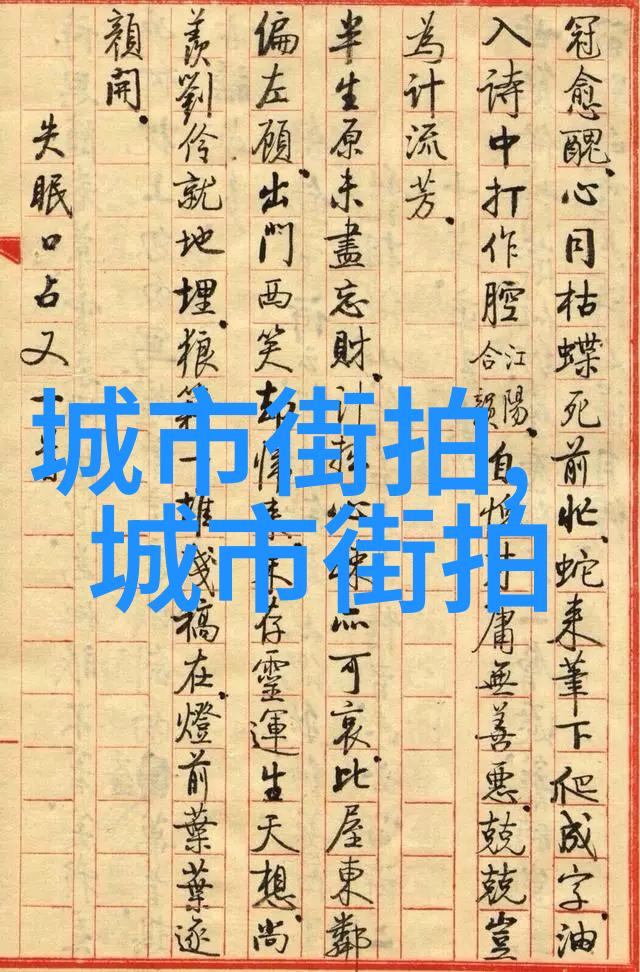 冠愈醜。心同枯蝶死前忙。蛇来筆下爬成字。油
入詩中打作腔 合江陽韻。自愧才庸無善惡。兢兢豈
為計流芳。
半生原未盡忘財。計拙心可哀。比屋東鄰
偏左顧。出門西笑却存靈運生天想。尚
羨劉伶就地埋。狼籍一堆殘稿在。燈前葉葉逐
顏開。
失眠口占又一
城市街拍,
城市街拍